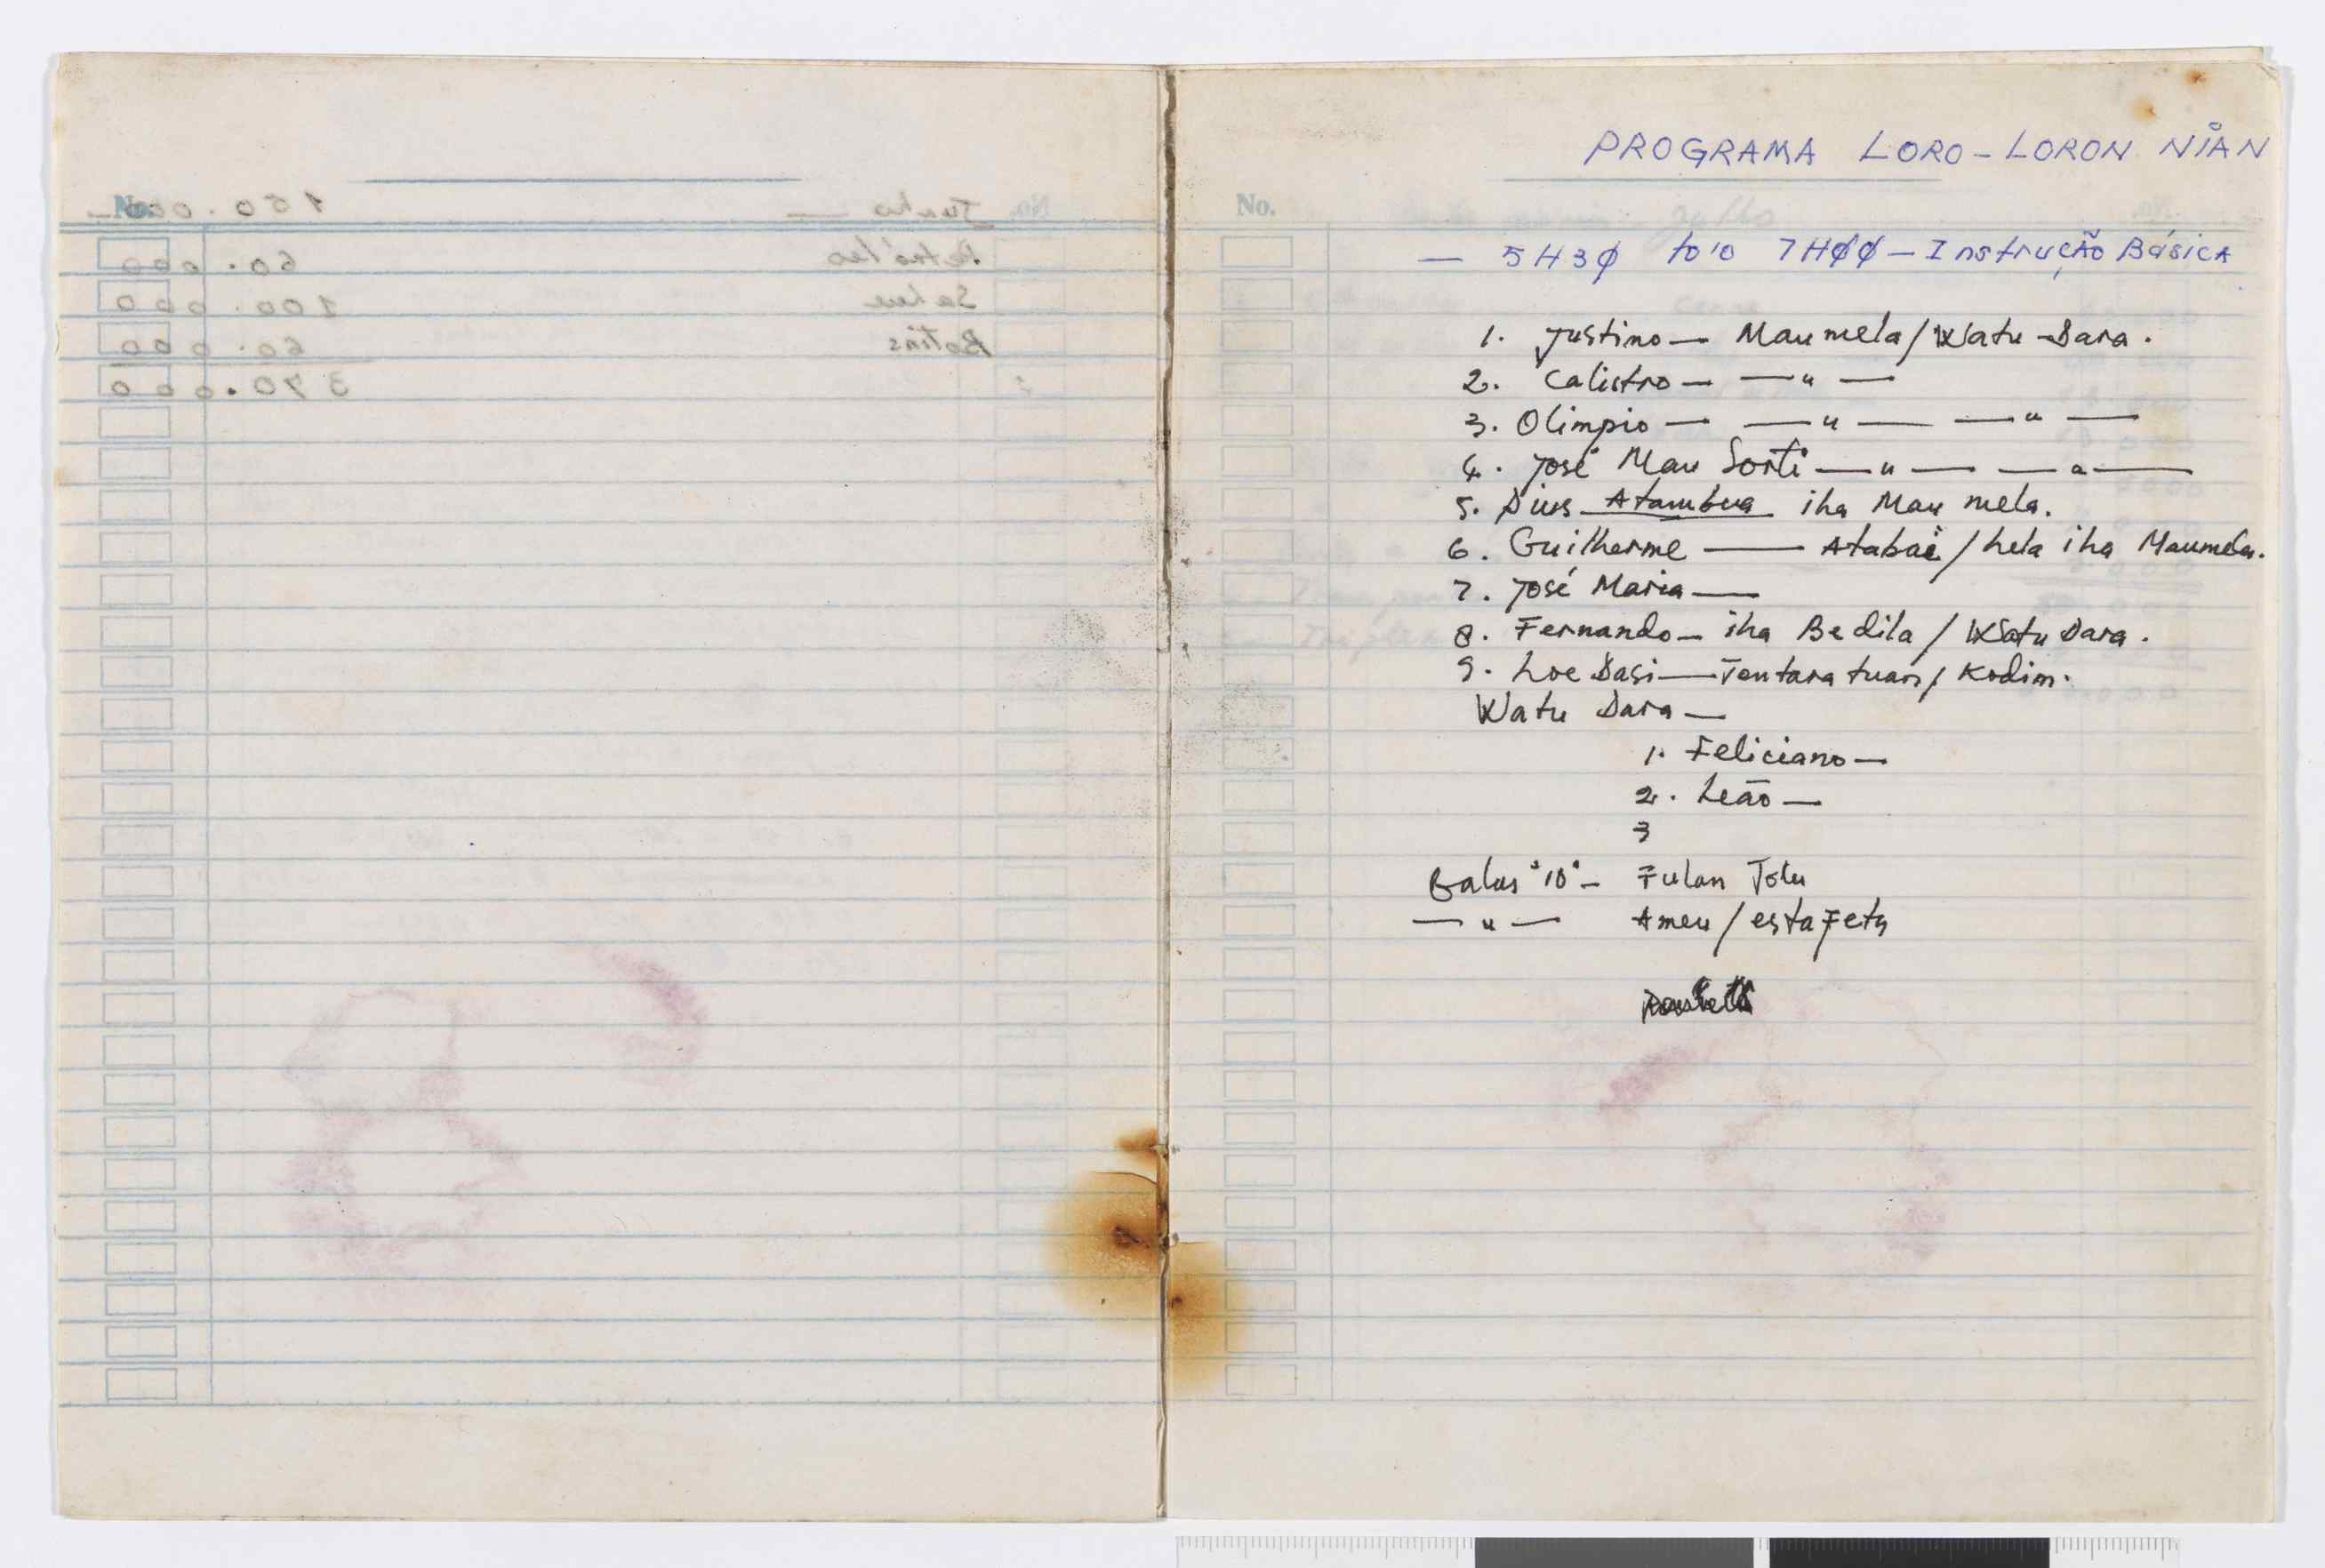 No.
Junho — 150.000
Petróleo 60.000
Sahue 100.000
Botins 60.000
370.000
PROGRAMA LORO-LORON NIAN
No.
— 5H3Ø to'o 7HØØ — Instrução Básica
1. Justino — Maumela/Watu-Dara.
2. Calistro — — " —
3. Olimpio — — " — — " —
4. José Mau Sorti — " — — " —
5. Dius Atambua iha Mau mela.
6. Guilherme — Atabai/hela iha Maumela.
7. José Maria —
8. Fernando — iha Bedila/Watu Dara.
9. Loe Dasi — Tentara tuan/Kodim.
Watu Dara —
1. Feliciano —
2. Leão —
3
Balus "10" — Fulan Tolu
— " — Ameu/estafeta